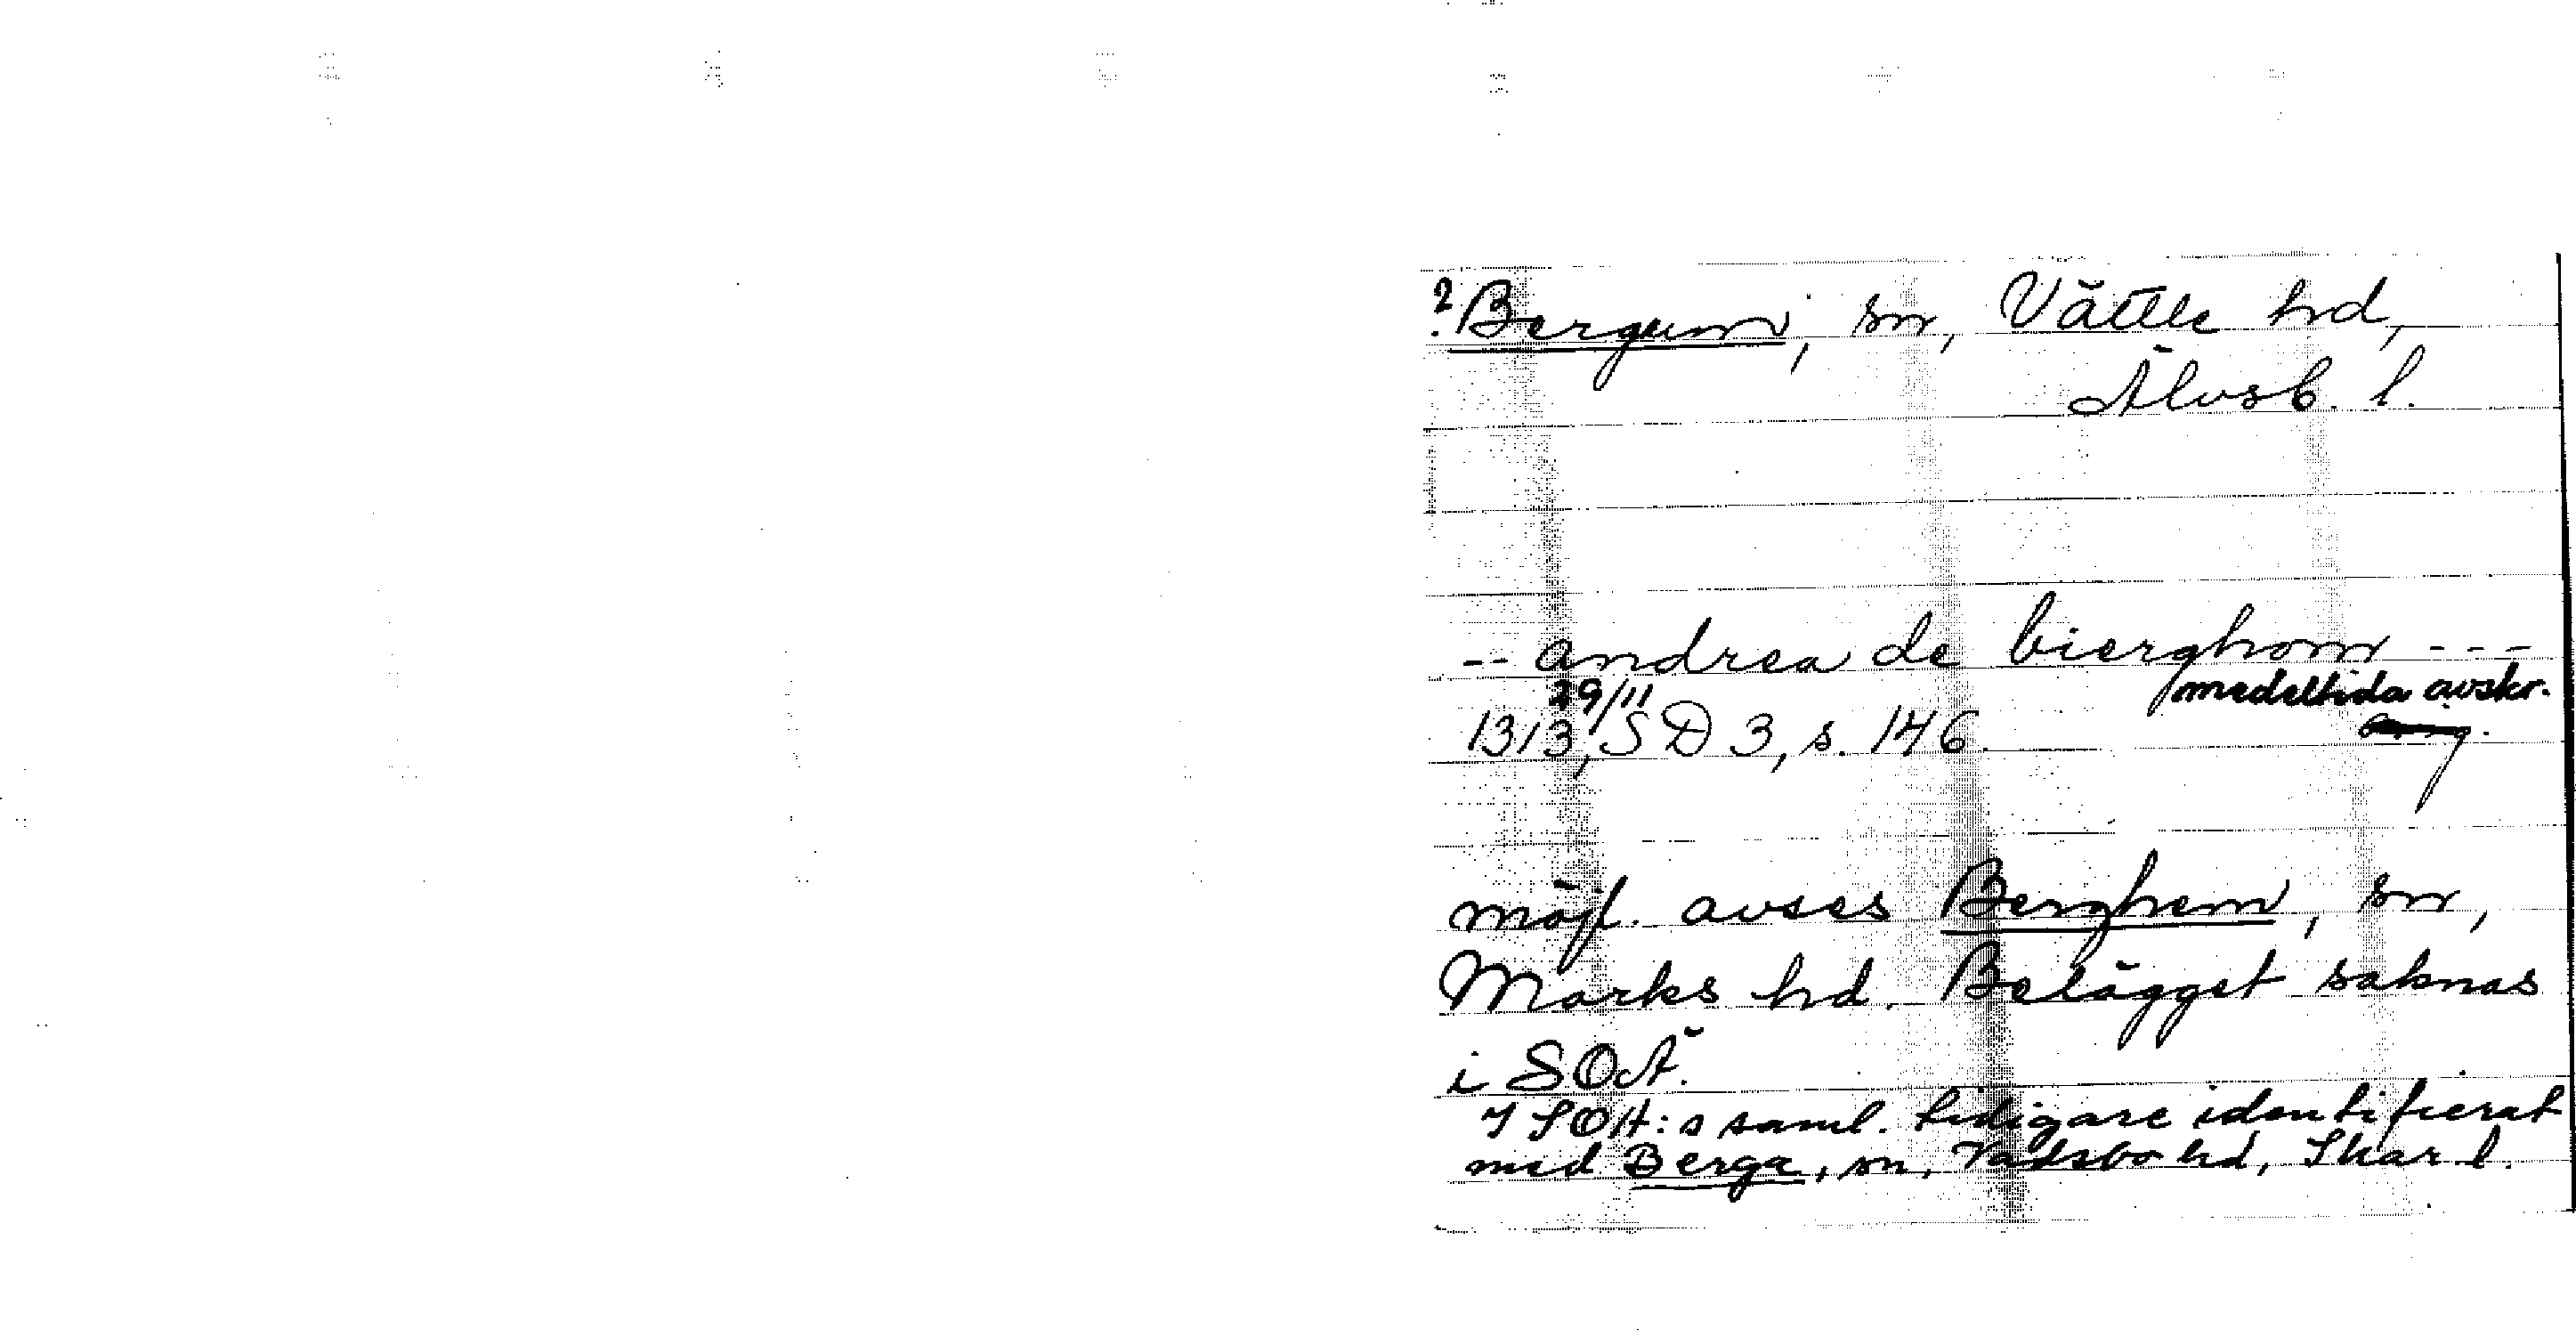 ?Bergum, sn, Vättle hd,
Älvsb. l.
-- andrea de bierghom ---
1313 29/11, SD 3, s. 146. medeltida avskr.
möjl. avses Berghem, sn,
Marks hd. Belägget saknas
i SOÄ.
I SOH:s saml. tidigare identifierat
med Berga, sn, Vadsbo hd, Skar l.